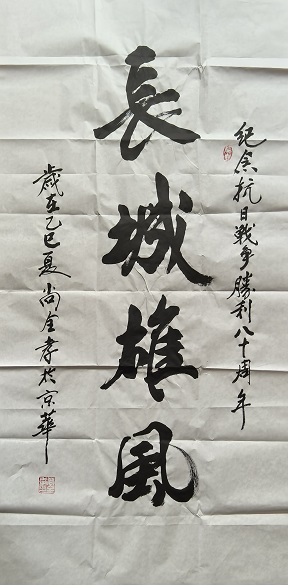 紀念抗日戰爭勝利八十周年
長城雄風
歲在乙巳夏尚全孝於京華